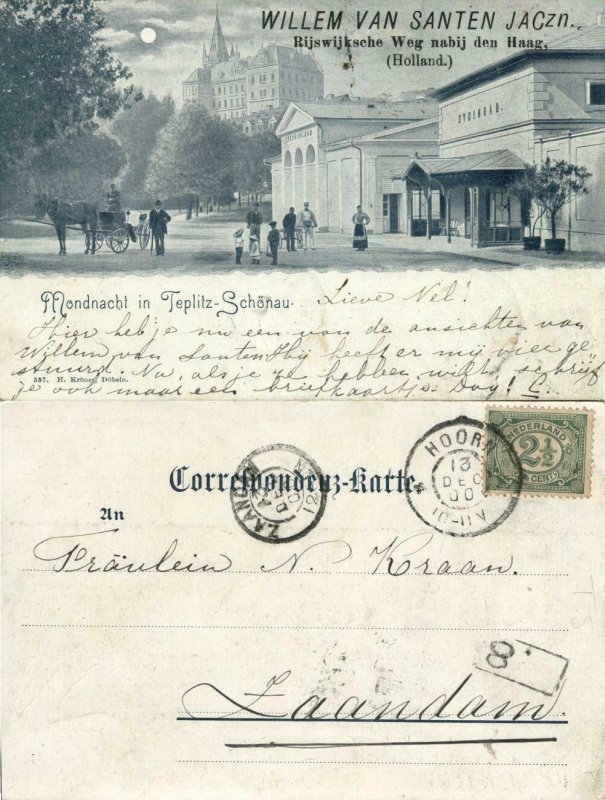 WILLEM VAN SANTEN JACzn.,
Rijswijksche Weg nabij den Haag,
(Holland.)
STEINBAD.
Mondnacht in Teplitz-Schönau.
Lieve Nel!
Hier heb je nu een van de ansichten van
Willem van Santen Hij heeft er mij vier ge-
stuurd. Nu, als je ze hebben wilt, schrijf
je ook maar een briefkaartje. Dag! C...
557. H. Kröner, Döbeln.
Correspondenz-Karte.
An
HOORN
13
DEC
00
10-11V
NEDERLAND
2½
CENT
ZAANDAM
Fräulein N. Kraan.
8
Zaandam.